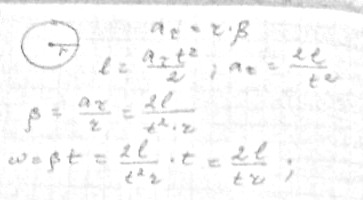 r
a_τ = r·β
l = a_τ t²/2 ; a_τ = 2l/t²
β = a_τ/r = 2l/(t²·r)
ω = βt = 2l/(t²r) · t = 2l/(tr) ;